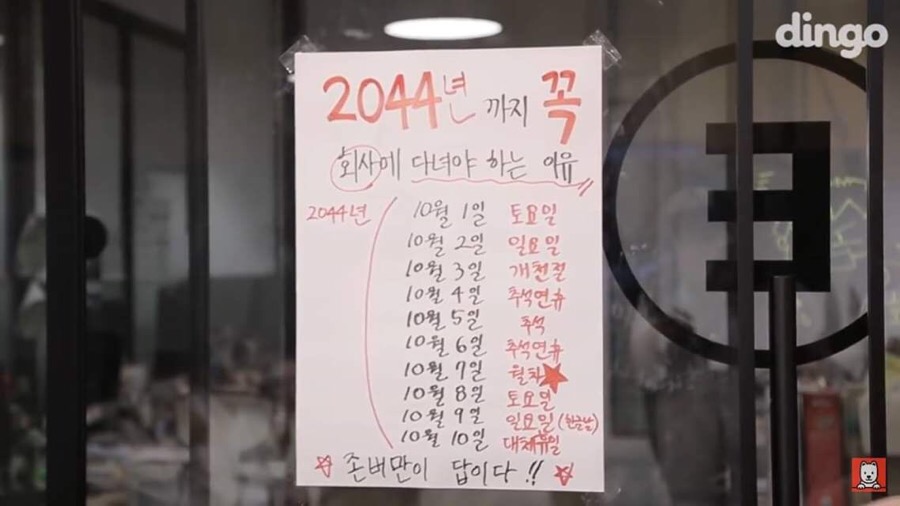 dingo
2044년 까지 꼭
회사에 다녀야 하는 이유
2044년
10월 1일 토요일
10월 2일 일요일
10월 3일 개천절
10월 4일 추석연휴
10월 5일 추석
10월 6일 추석연휴
10월 7일 월차
10월 8일 토요일
10월 9일 일요일 (한글날)
10월 10일 대체휴일
존버만이 답이다!!